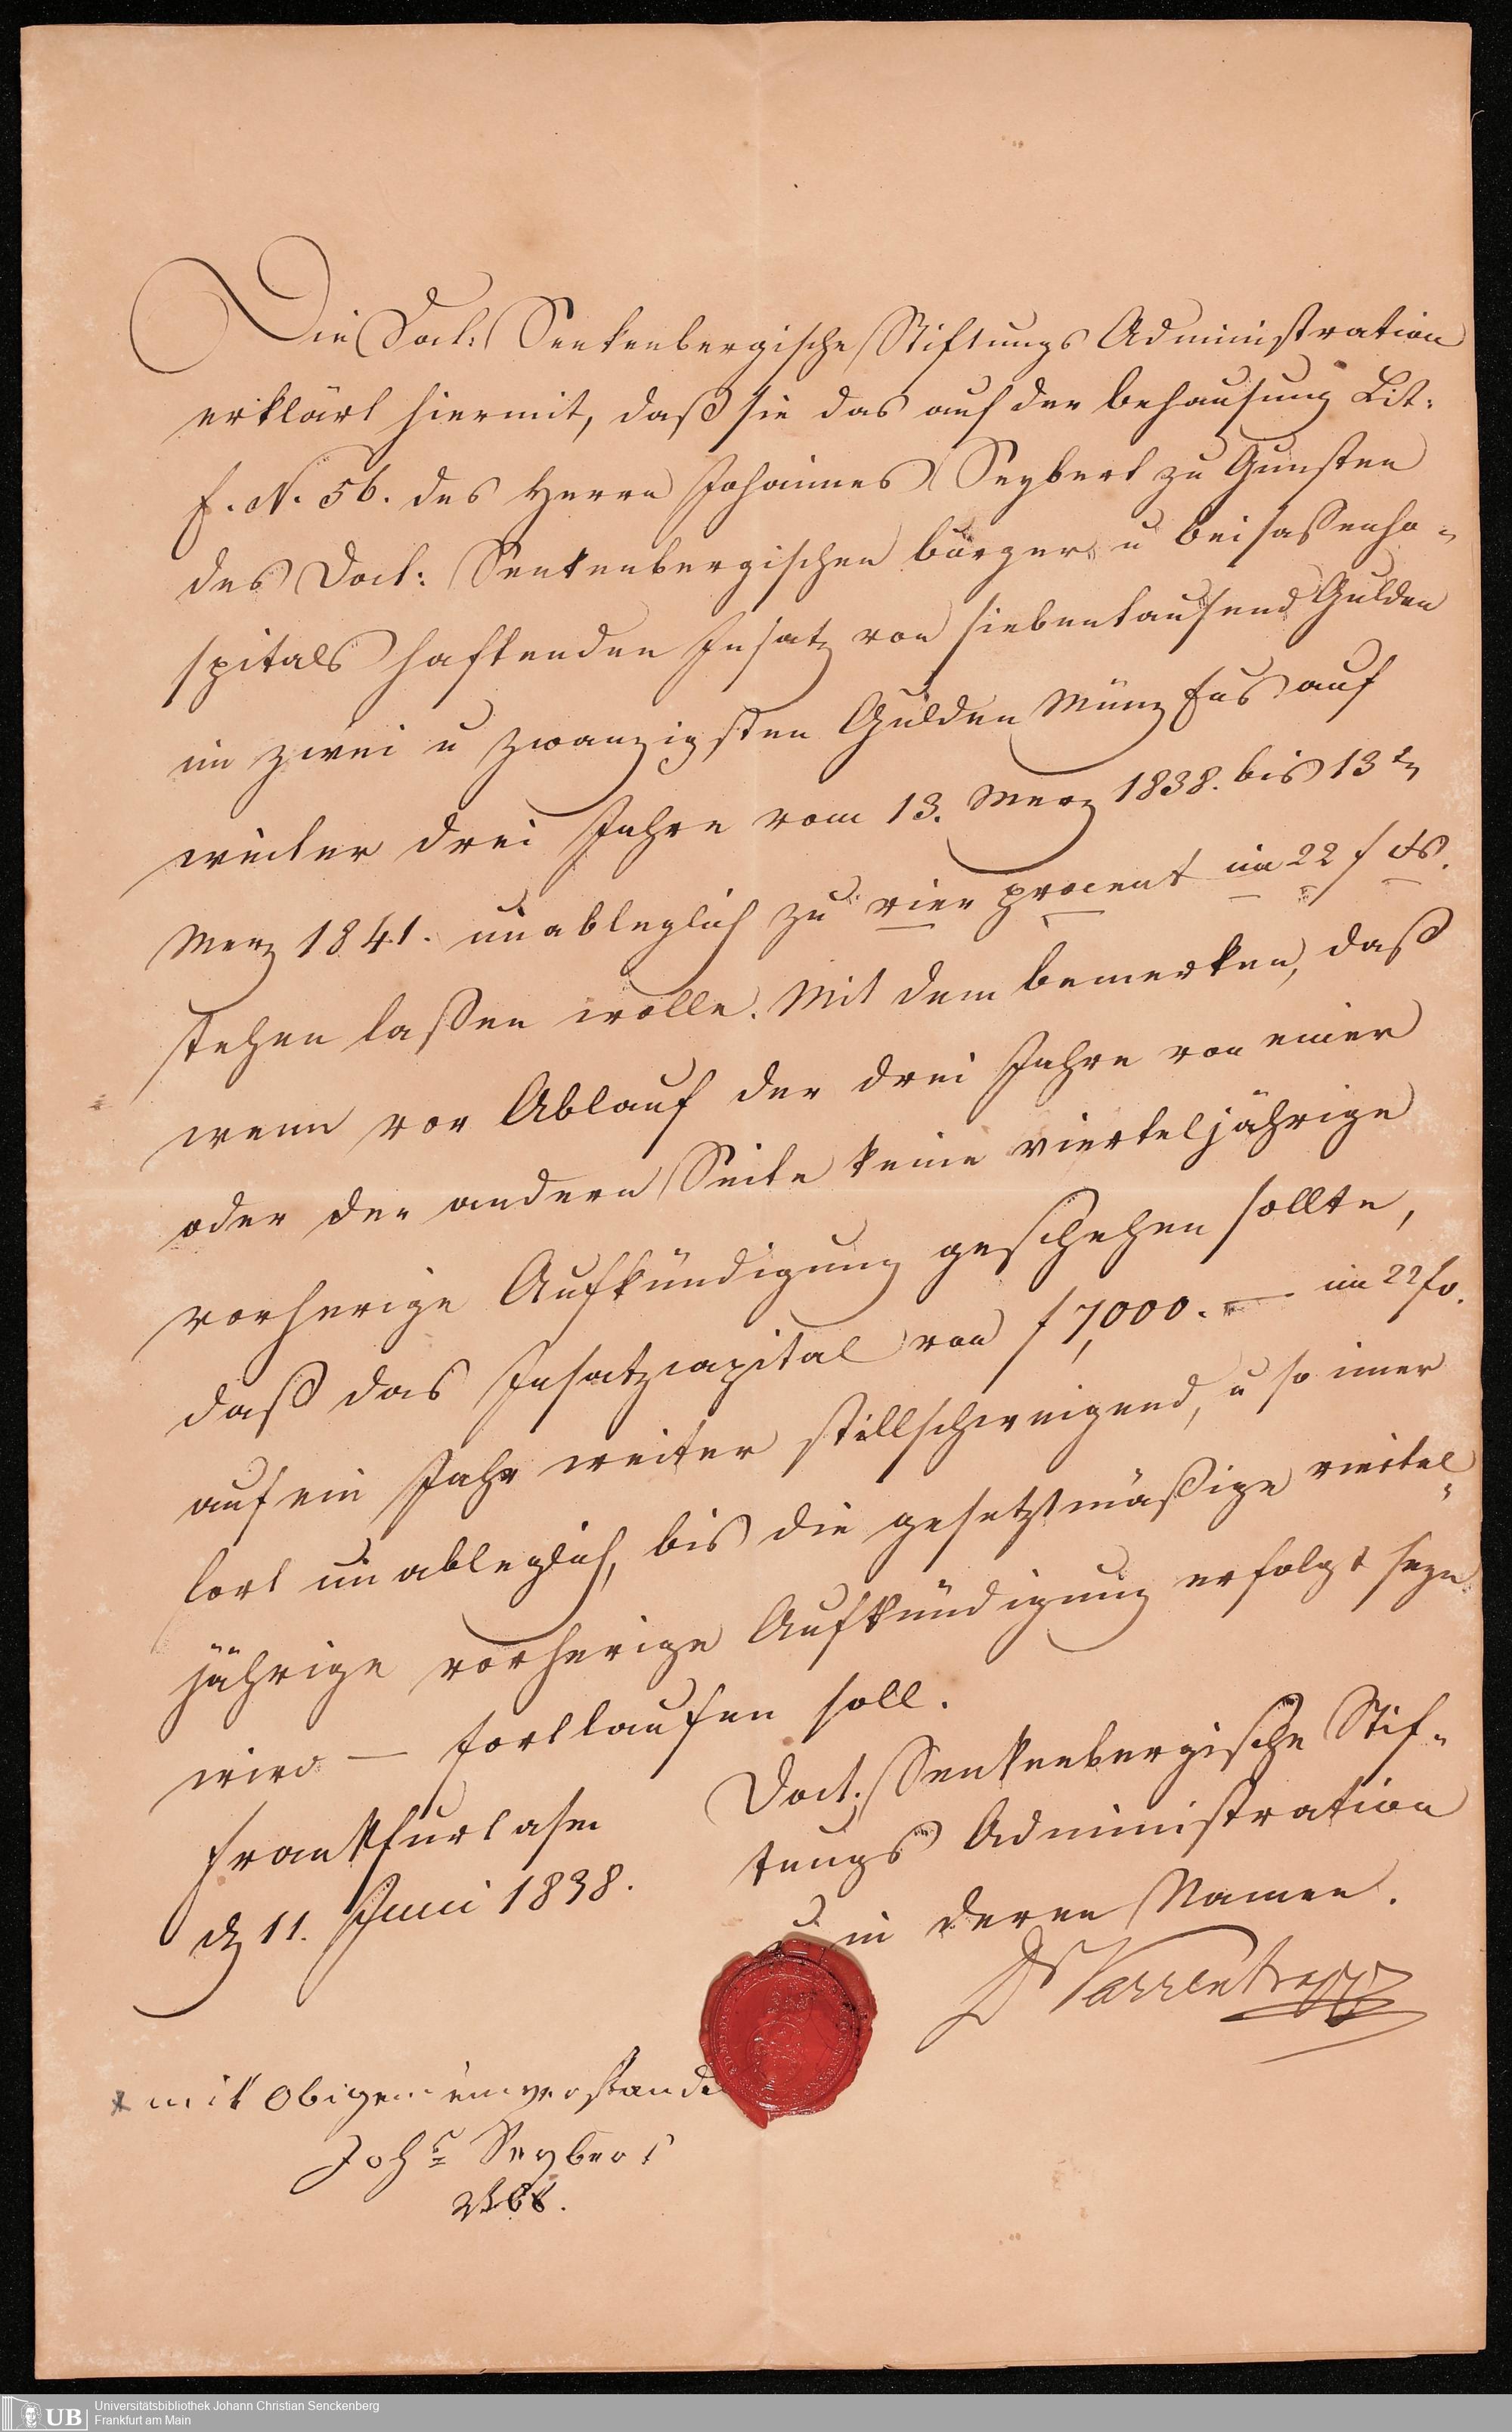 Die Doct: Senkenbergische Stiftungs Administration
erklärt hiermit, daß sie das auf der Behausung Lit:
F. N. 56. des Herrn Johannes Seybert zu Gunsten
des Doct: Senkenbergischen Bürger u Beisaßenho-
spitals haftenden Insatz von siebentausend Gulden
im zwei u zwanzigsten Gulden Münz Fus auf
weiter drei Jahre vom 13. Merz 1838. bis 13tn
Merz 1841. unableglich zu vier procent im 22 f
stehen laßen wolle. Mit dem Bemerken, daß
wenn vor Ablauf der drei Jahre von einer
oder der andern Seite keine vierteljährige
vorherige Aufkündigung geschehen sollte,
daß das Insatzcapital von f 7,000. — im 22 fs.
auf ein Jahr weiter stillschweigend, u so imer
fort unableglich, bis die gesetztmäßige viertel-
jährige vorherige Aufkündigung erfolgt seyn
wird — fortlaufen soll.
Frankfurt a/m
d 11. Juni 1838.
Doct. Senkenbergische Stif-
tungs Administration
u in deren Namen.
Dr Varrentrapp
mit Obigem einverstande
Johs Seybert